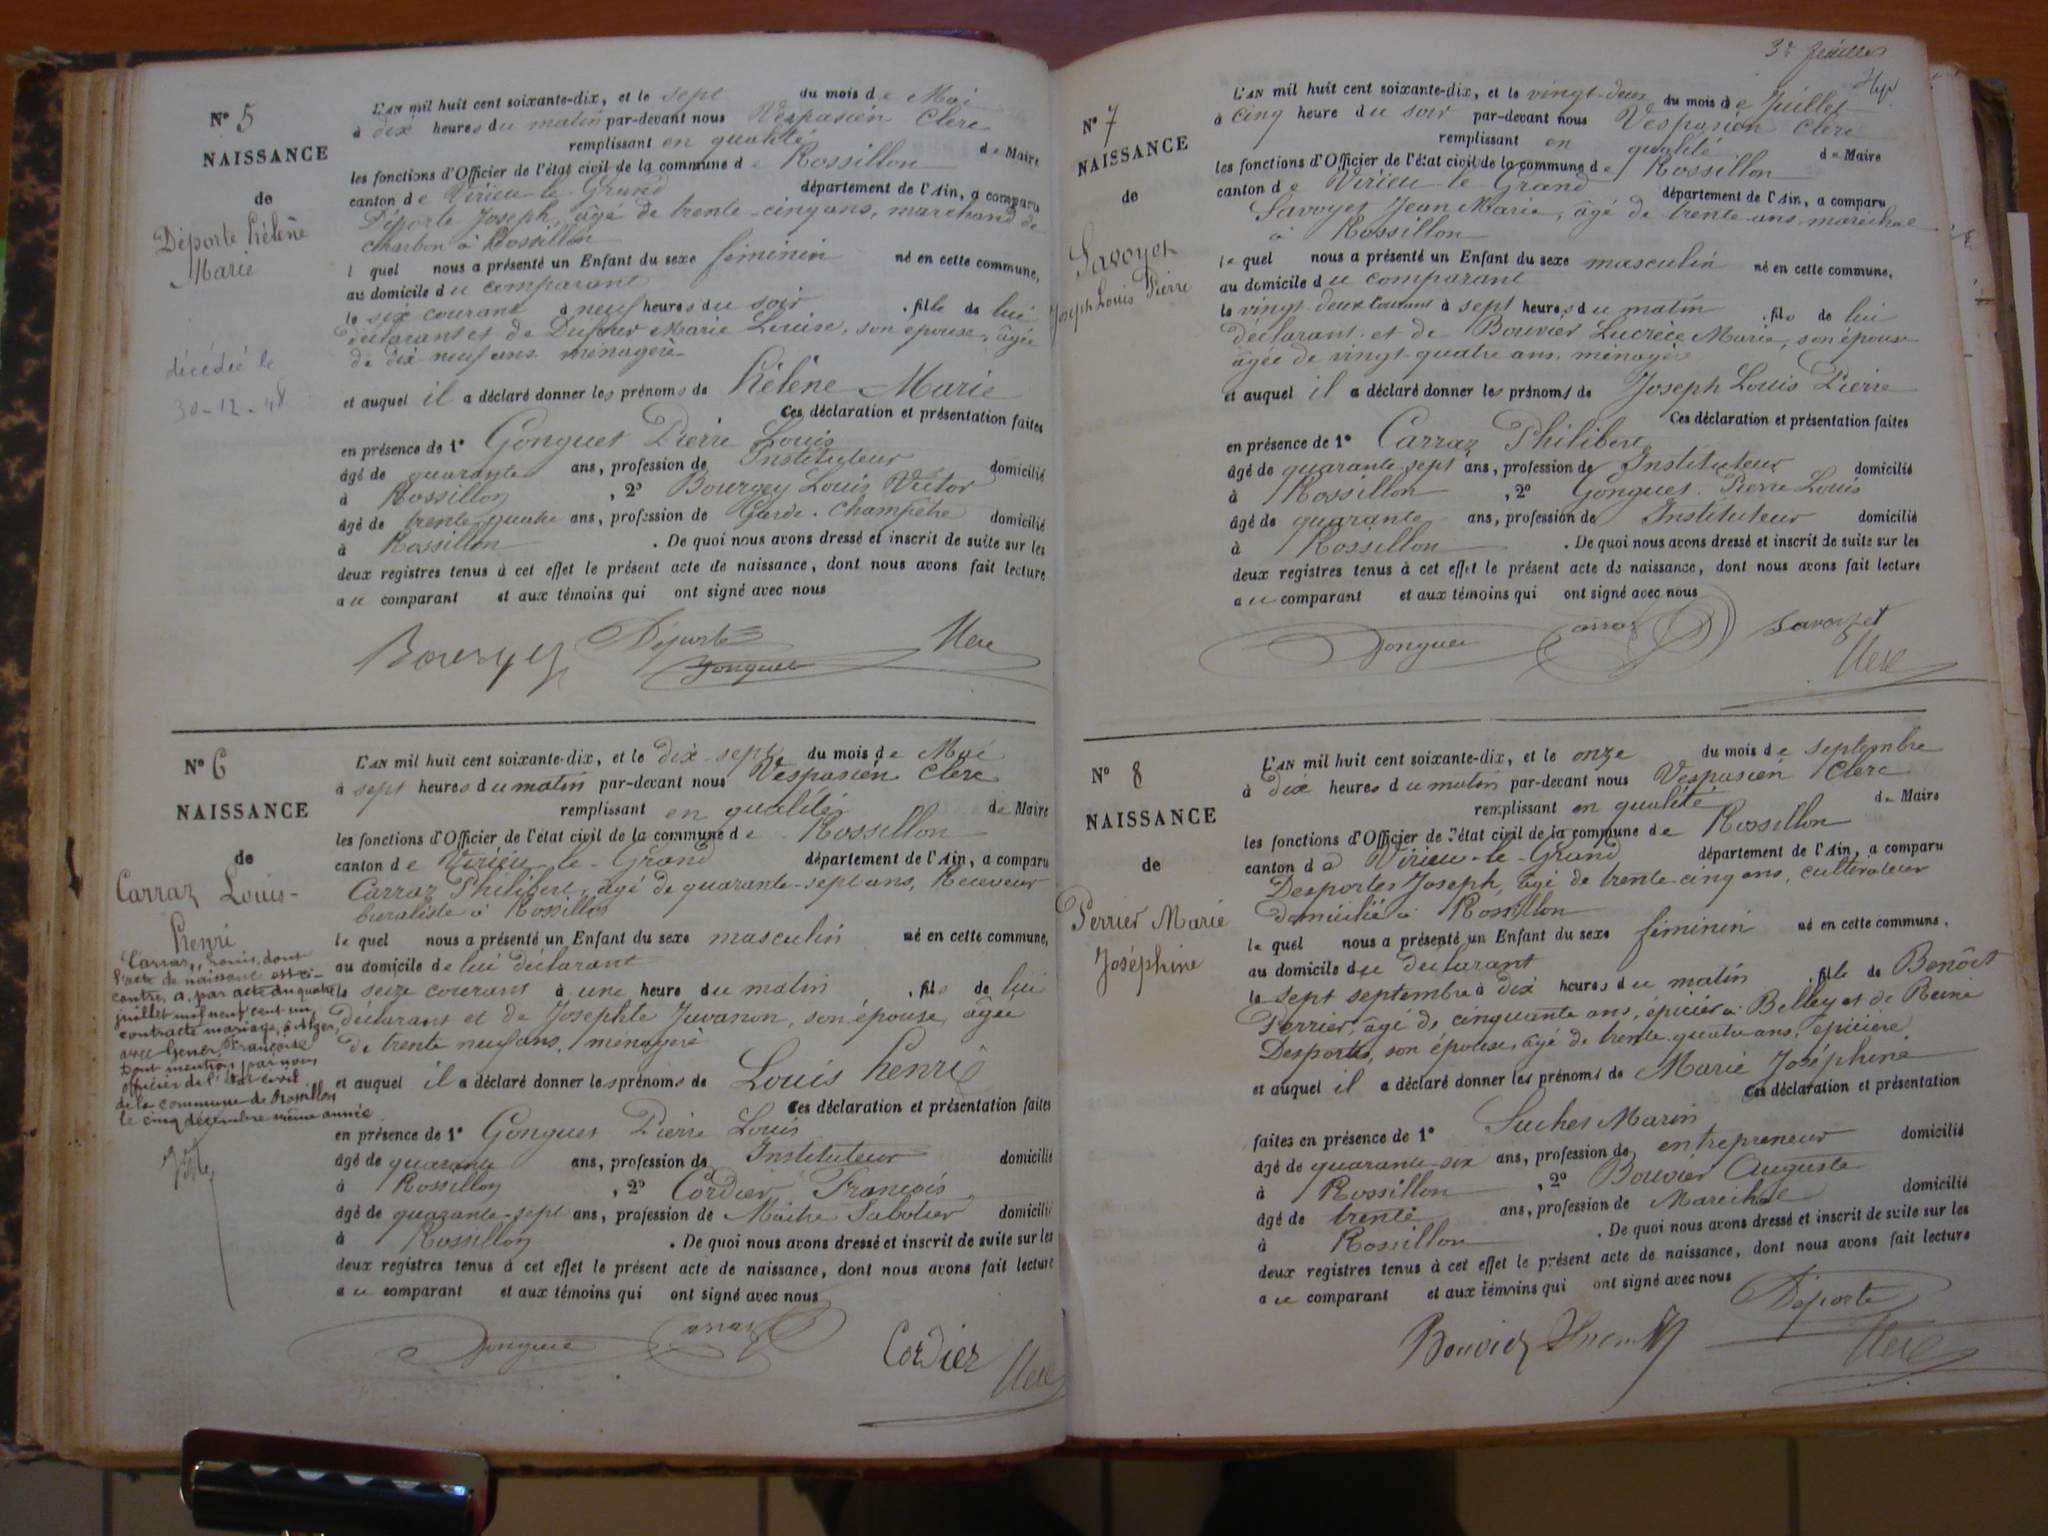 N° 5
NAISSANCE
de
Déporte Hélène
Marie
décédée le
30-12-48
L'AN mil huit cent soixante-dix, et le sept du mois de Mai
à dix heures du matin par-devant nous Vespasien Clerc
remplissant en qualité de Maire
les fonctions d'Officier de l'état civil de la commune de Rossillon
canton de Virieu-le-Grand département de l'Ain, a comparu
Déporte Joseph, âgé de trente-cinq ans, marchand de
charbon à Rossillon
l quel nous a présenté un Enfant du sexe féminin né en cette commune,
au domicile du comparant
le six courant à neuf heures du soir, fille de lui
déclarant et de Dufour Marie Louise, son épouse, âgée
de dix neuf ans ménagère
et auquel il a déclaré donner les prénoms de Hélène Marie
Ces déclaration et présentation faites
en présence de 1° Gonguet Pierre Louis
âgé de quarante ans, profession de Instituteur domicilié
à Rossillon, 2° Bourgey Louis Victor
âgé de trente-quatre ans, profession de Garde-Champêtre domicilié
à Rossillon. De quoi nous avons dressé et inscrit de suite sur les
deux registres tenus à cet effet le présent acte de naissance, dont nous avons fait lecture
au comparant et aux témoins qui ont signé avec nous
Bourgey Déporte Gonguet Clerc
N° 6
NAISSANCE
de
Carraz Louis-
Henri
Carraz, Louis, dont
l'acte de naissance est ci-
contre, a, par acte du quatre
juillet mil neuf cent un,
contracté mariage, à Alger,
avec Gener, Françoise
Dont mention par nous
officier de l'état civil
de la commune de Rossillon
le cinq décembre même année
L'AN mil huit cent soixante-dix, et le dix-sept du mois de Mai
à sept heures du matin par-devant nous Vespasien Clerc
remplissant en qualité de Maire
les fonctions d'Officier de l'état civil de la commune de Rossillon
canton de Virieu-le-Grand département de l'Ain, a comparu
Carraz Philibert, âgé de quarante-sept ans, Receveur
buraliste à Rossillon
le quel nous a présenté un Enfant du sexe masculin né en cette commune,
au domicile de lui déclarant
le seize courant à une heure du matin, fils de lui
déclarant et de Josephte Juvanon, son épouse, âgée
de trente neuf ans, ménagère
et auquel il a déclaré donner les prénoms de Louis Henri
Ces déclaration et présentation faites
en présence de 1° Gonguet Pierre Louis
âgé de quarante ans, profession de Instituteur domicilié
à Rossillon, 2° Cordier François
âgé de quarante-sept ans, profession de Maître Sabotier domicilié
à Rossillon. De quoi nous avons dressé et inscrit de suite sur les
deux registres tenus à cet effet le présent acte de naissance, dont nous avons fait lecture
au comparant et aux témoins qui ont signé avec nous
Gonguet Carraz Cordier Clerc
3e feuillet
N° 7
NAISSANCE
de
Savoyet
Joseph Louis Pierre
L'AN mil huit cent soixante-dix, et le vingt-deux du mois de Juillet
à cinq heure du soir par-devant nous Vespasien Clerc
remplissant en qualité de Maire
les fonctions d'Officier de l'état civil de la commune de Rossillon
canton de Virieu-le-Grand département de l'Ain, a comparu
Savoyet Jean Marie, âgé de trente ans, maréchal
à Rossillon
le quel nous a présenté un Enfant du sexe masculin né en cette commune,
au domicile du comparant
le vingt-deux courant à sept heures du matin, fils de lui
déclarant et de Bouvier Lucrèce Marie, son épouse
âgée de vingt-quatre ans, ménagère
et auquel il a déclaré donner les prénoms de Joseph Louis Pierre
Ces déclaration et présentation faites
en présence de 1° Carraz Philibert
âgé de quarante-sept ans, profession de Instituteur domicilié
à Rossillon, 2° Gonguet Pierre Louis
âgé de quarante ans, profession de Instituteur domicilié
à Rossillon. De quoi nous avons dressé et inscrit de suite sur les
deux registres tenus à cet effet le présent acte de naissance, dont nous avons fait lecture
au comparant et aux témoins qui ont signé avec nous
Gonguet Carraz Savoyet
Clerc
N° 8
NAISSANCE
de
Perrier Marie
Joséphine
L'AN mil huit cent soixante-dix, et le onze du mois de septembre
à dix heures du matin par-devant nous Vespasien Clerc
remplissant en qualité de Maire
les fonctions d'Officier de l'état civil de la commune de Rossillon
canton de Virieu-le-Grand département de l'Ain, a comparu
Desportes Joseph, âgé de trente-cinq ans, cultivateur
domicilié à Rossillon
le quel nous a présenté un Enfant du sexe féminin né en cette commune,
au domicile du déclarant
le sept septembre à dix heures du matin, fille de Benoît
Perrier, âgé de cinquante ans, épicier à Belley et de Reine
Desportes, son épouse, âgé de trente-quatre ans, épicière
et auquel il a déclaré donner les prénoms de Marie Joséphine
Ces déclaration et présentation
faites en présence de 1° Suchet Marin
âgé de quarante-six ans, profession de entrepreneur domicilié
à Rossillon, 2° Bouvier Auguste
âgé de trente ans, profession de Maréchal domicilié
à Rossillon. De quoi nous avons dressé et inscrit de suite sur les
deux registres tenus à cet effet le présent acte de naissance, dont nous avons fait lecture
au comparant et aux témoins qui ont signé avec nous
Déporte
Bouvier Clerc